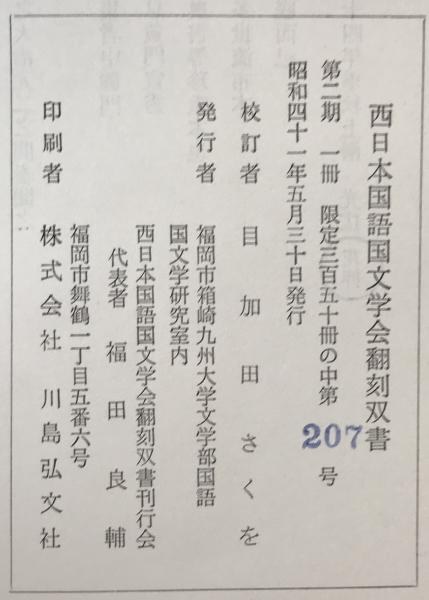 西日本国語国文学会翻刻双書
第二期 一冊 限定三百五十冊の中第 207 号
昭和四十一年五月三十日発行
校訂者 目加田さくを
発行者 福岡市箱崎九州大学文学部国語
国文学研究室内
西日本国語国文学会翻刻双書刊行会
代表者 福田良輔
福岡市舞鶴一丁目五番六号
印刷者 株式会社 川島弘文社